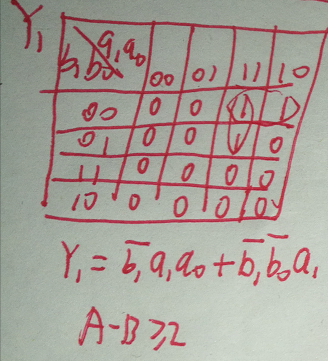 Y₁
a₁a₀
b₁b₀ 00 01 11 10
00 0 0 1 1
01 0 0 1 0
11 0 0 0 0
10 0 0 0 0
Y₁ = b̅₁a₁a₀ + b̅₁b̅₀a₁
A-B⩾2